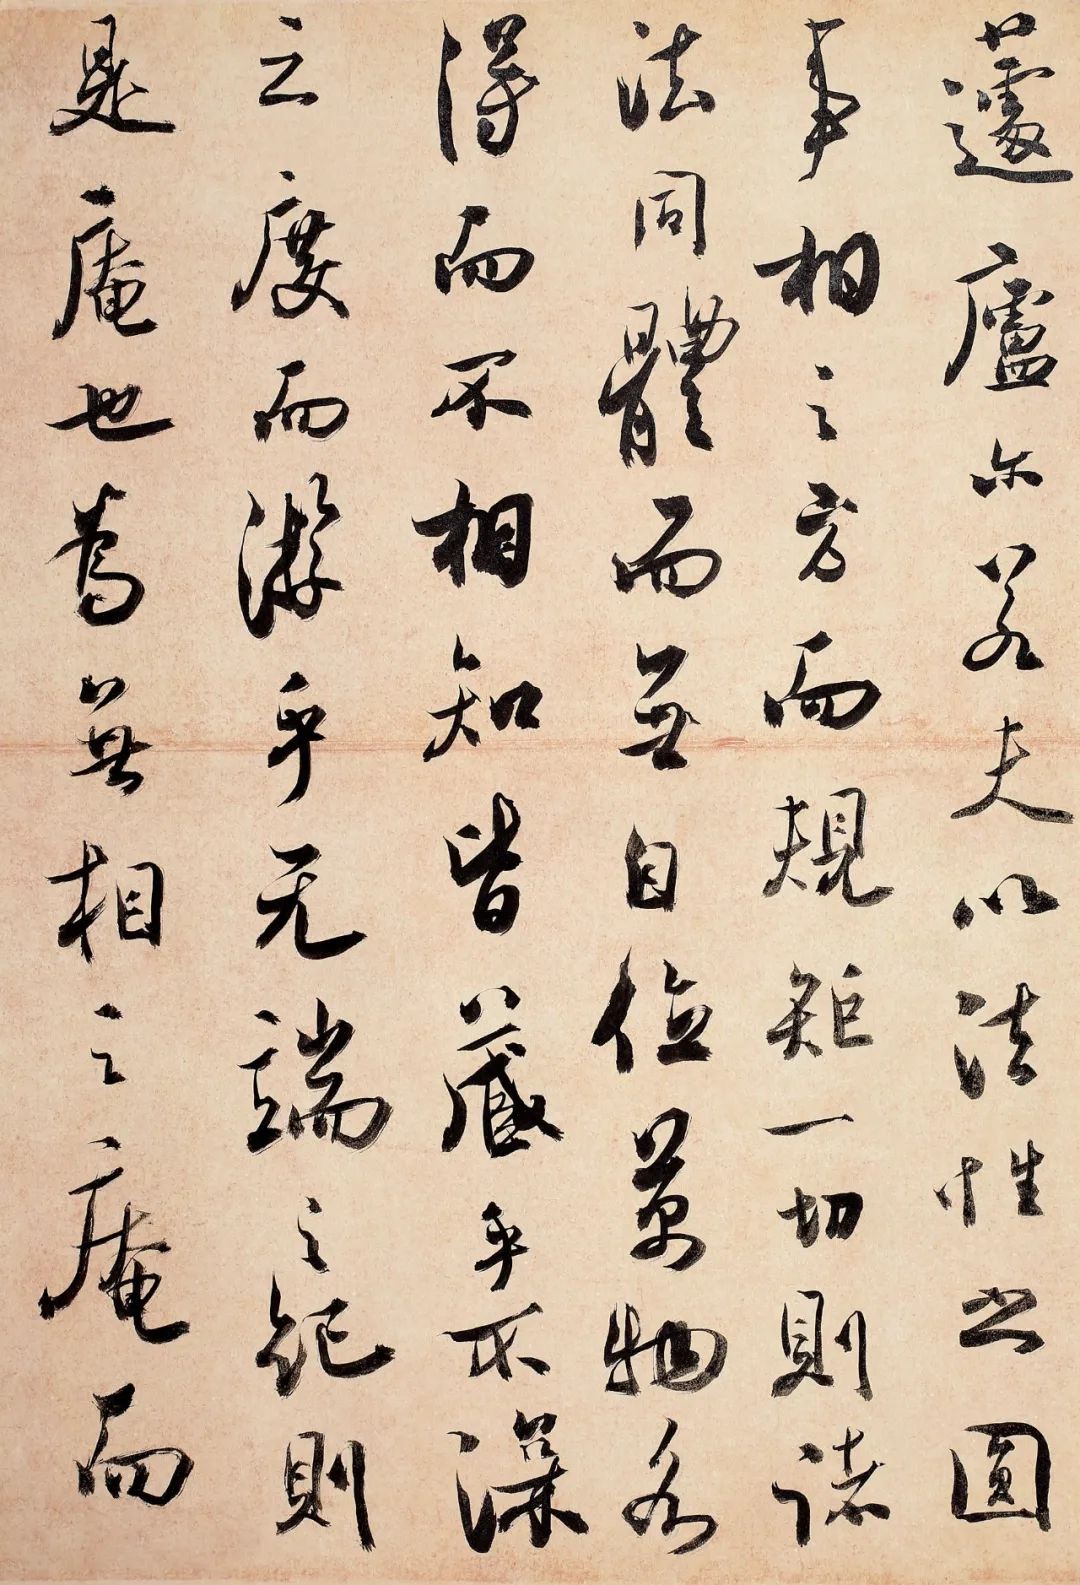 蘧廬尓若夫以法性之圓
事相之方而規矩一切則諸
法同體而無自位萬物各
得而不相知皆藏乎不深
之度而游乎无端之紀則
是庵也為無相之庵而